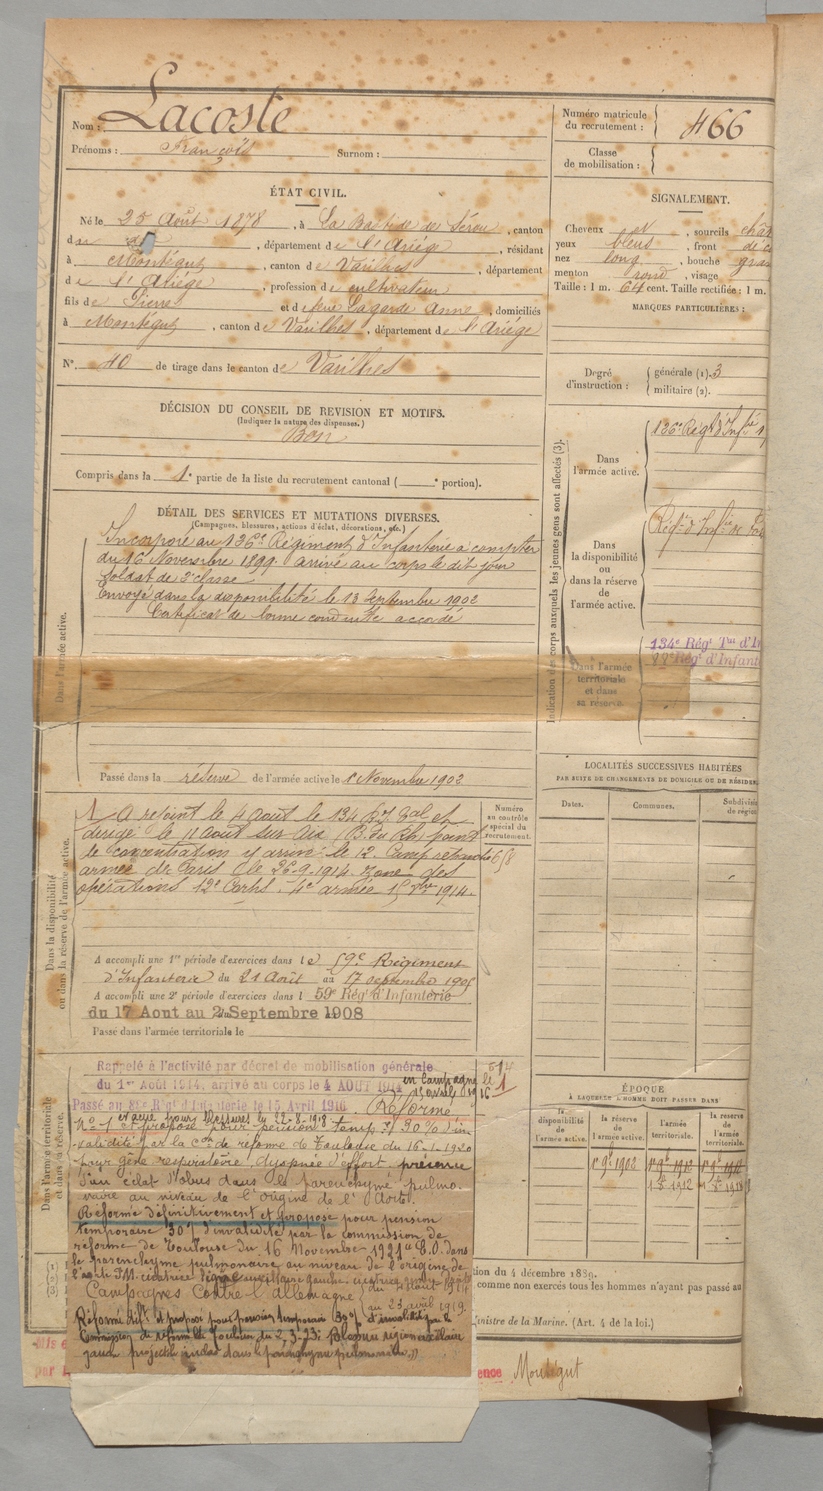 Nom : Lacoste
Prénoms : François Surnom :
ÉTAT CIVIL.
Né le 25 Août 1878, à La Bastide de Sérou, canton
de, département de l'Ariège, résidant
à Montégut, canton de Varilhes, département
de l'Ariège, profession de cultivateur
fils de Pierre et de feue Lagarde Anne, domiciliés
à Montégut, canton de Varilhes, département de l'Ariège
N° 40 de tirage dans le canton de Varilhes
DÉCISION DU CONSEIL DE REVISION ET MOTIFS.
(Indiquer la nature des dispenses.)
Bon
Compris dans la 1e partie de la liste du recrutement cantonal ( e portion).
DÉTAIL DES SERVICES ET MUTATIONS DIVERSES.
(Campagnes, blessures, actions d'éclat, décorations, etc.)
Dans l'armée active.
Incorporé au 136e Régiment d'Infanterie à compter
du 16 Novembre 1899. arrivé au corps le dit jour
Soldat de 2e classe
Envoyé dans la disponibilité le 13 Septembre 1902
Certificat de bonne conduite accordé
Passé dans la réserve de l'armée active le 1er Novembre 1902
Dans la disponibilité
ou dans la réserve de l'armée active.
A rejoint le 4 Août le 134 Rg Tal et
dirigé le 11 août sur Aix (B. du Rh) point
de concentration y arrive le 12. Camp retranché
armée de Paris le 26-9-1914 zone des
opérations 12e Corps. 4e armée 1914.
A accompli une 1re période d'exercices dans le 59e Régiment
d'Infanterie du 21 Août au 17 septembre 1905
A accompli une 2e période d'exercices dans l 59e Régt d'Infanterie
du 17 Aout au Septembre 1908
Passé dans l'armée territoriale le
Dans l'armée territoriale
et dans sa réserve.
Rappelé à l'activité par décret de mobilisation générale
du 1er Août 1914, arrivé au corps le 4 AOUT 1914 en campagne le
Passé au Régt d'Infanterie le 15 Avril 1916 Réformé
N° 1 et proposé pour pension temp. 30% in-
validité par la Con de réforme de Toulouse du 16-1-1920
pour gêne respiratoire, dyspnée d'effort présence
d'un éclat d'obus dans le parenchyme pulmo-
naire au niveau de l'origine de l'Aorte.
Réformé définitivement et proposé pour pension
temporaire 30% d'invalidité par la commission de
réforme de Toulouse du 16 Novembre 1921 "E.O. dans
le parenchyme pulmonaire au niveau de l'origine de
Campagnes Contre l'allemagne du 4 août 1914
au 23 avril 1919.
Réformé déf. et proposé pour pension temporaire 30% d'invalidité par la
Commission de réforme de Toulouse du 2-3-23: Blessure région axillaire
gauche projectile inclus dans le parenchyme pulmonaire "
Numéro
au contrôle
spécial du
recrutement.
658
Numéro matricule
du recrutement : 466
Classe
de mobilisation :
SIGNALEMENT.
Cheveux, sourcils
yeux bleus, front
nez long, bouche
menton rond, visage
Taille : 1 m. 64 cent. Taille rectifiée : 1 m.
MARQUES PARTICULIÈRES :
Degré
d'instruction :
générale (1). 3
militaire (2).
Indication des corps auxquels les jeunes gens sont affectés (3).
Dans
l'armée active.
136e Régt d'Infie
Dans
la disponibilité
ou
dans la réserve
de
l'armée active.
Régt d'Infie de
Dans l'armée
territoriale
et dans
sa réserve.
134e Régt Tal d'I
88e Régt d'Infant
LOCALITÉS SUCCESSIVES HABITÉES
PAR SUITE DE CHANGEMENTS DE DOMICILE OU DE RÉSIDEN
Dates. Communes. Subdivis
de régio
ÉPOQUE
À LAQUELLE L'HOMME DOIT PASSER DANS
la
disponibilité
de
l'armée active.
la réserve
de
l'armée active.
l'armée
territoriale.
la réserve
de
l'armée
territoriale.
1er 9bre 1902
tion du 4 décembre 1889.
comme non exercés tous les hommes n'ayant pas passé au
inistre de la Marine. (Art. 4 de la loi.)
ence Montégut